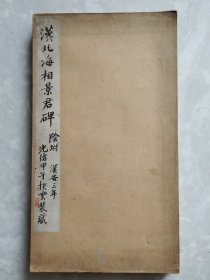 漢北海相景君碑
陰坿 漢安二年
光緒甲午扶雲裝藏